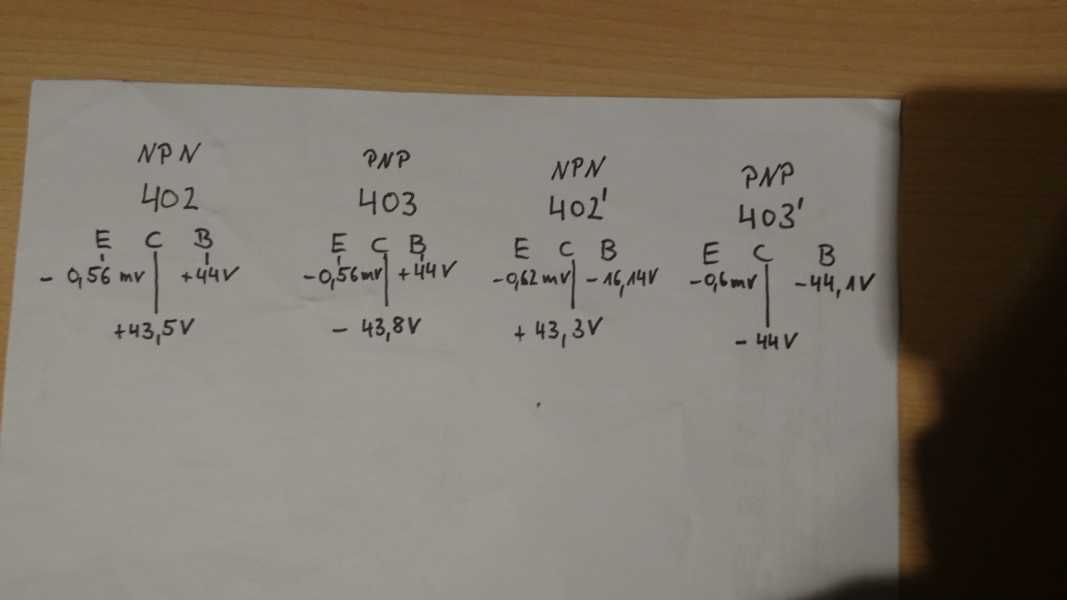 NPN PNP NPN PNP
402 403 402' 403'
E C B E C B E C B E C B
- 0,56 mv +44V -0,56mv +44V -0,62mv -16,14V -0,6mv -44,1V
+43,5V - 43,8V + 43,3V - 44V